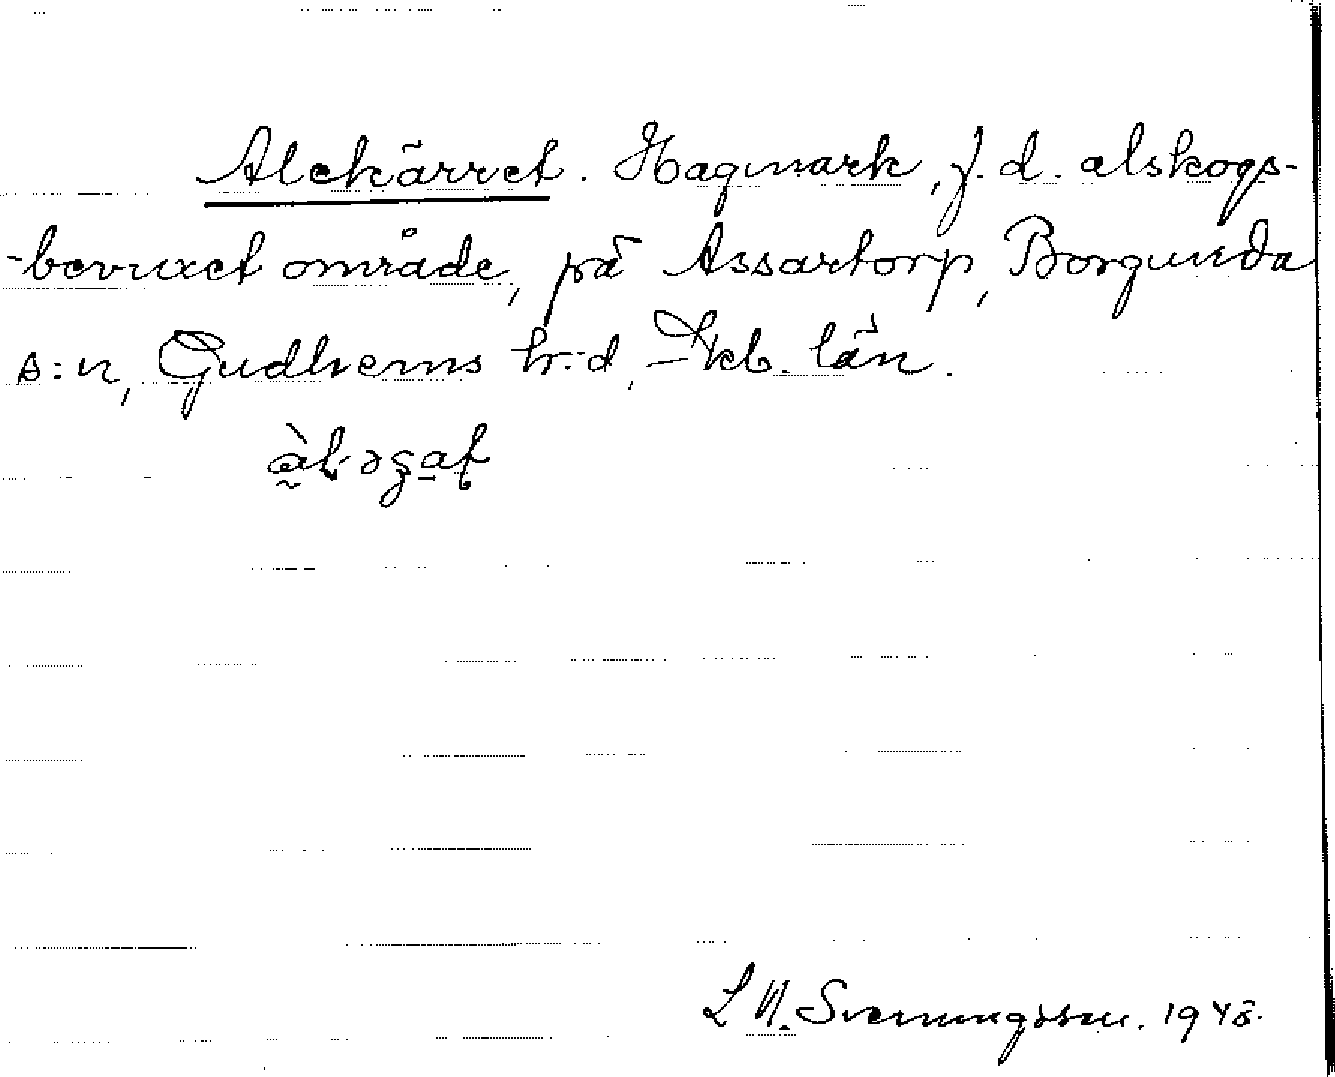 Alekärret. Hagmark, f.d. alskogs-
-bevuxet område, på Assartorp, Borgunda
s:n, Gudhems h:d, Skb. län.
L N. Svenungsson. 1948.